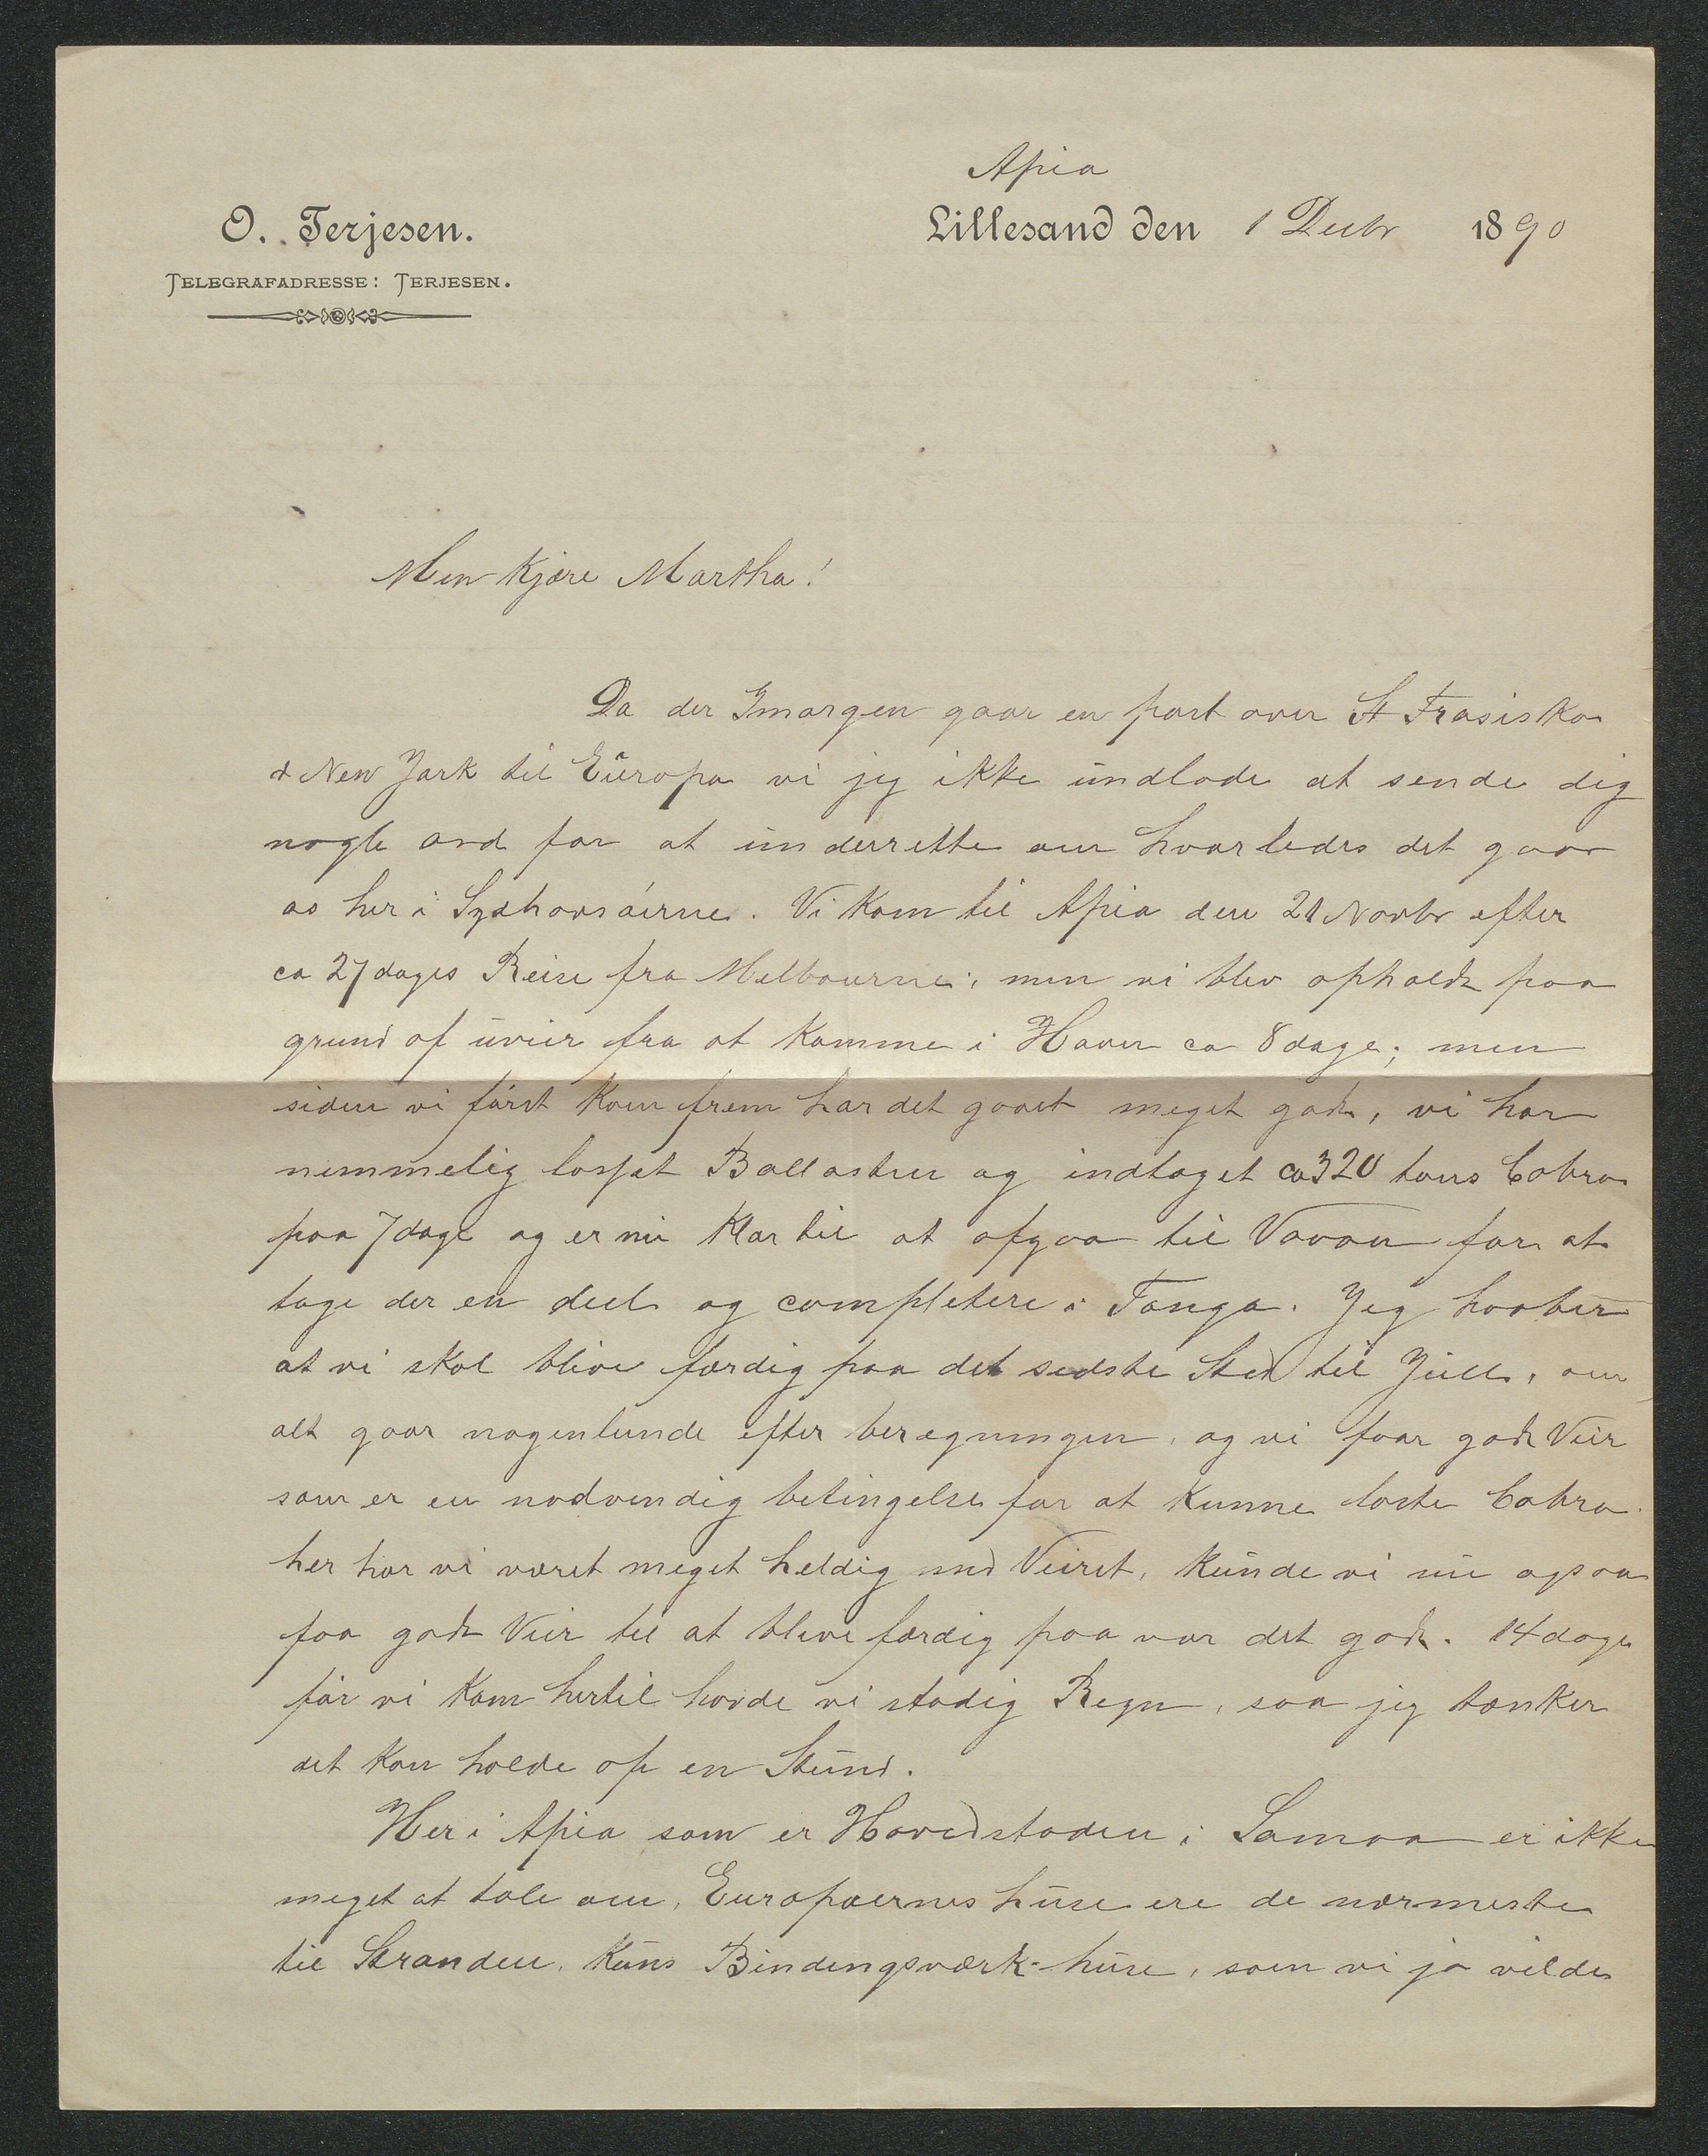 Apia
O. Terjesen.
Lillesand den 1 Decbr 1890
TELEGRAFADRESSE: TERJESEN.
Min Kjære Martha!
Da der Imorgen gaar en post over St Frasisko
& New York til Europa vi jeg ikke undlade at sende dig
nogle ord for at underrette om hvorledes det gaar
os her i Sydhavsöerne. Vi kom til Apia den 21 Novbr efter
ca 27 dages Reise fra Melbourne, men vi blev opholdt paa
grund af uveir fra at komme i Havn ca 8 dage; men
siden vi først kom frem har det gaaet meget godt, vi har
nemmelig losset Ballasten og indtaget ca 320 tons Cobra
paa 7 dage og er nu klar til at afgaa til Vavau for at
tage der en deel og completere i Tonga. Jeg haaber
at vi skal blive færdig paa det sidste Sted til Juul, om
alt gaar nogenlunde efter beregningen, og vi faar godt Veir
som er en nødvendig betingelse for at kunne laste Cobra.
her har vi været meget heldig med Veiret, kunde vi nu ogsaa
faa godt Veir til at blive færdig paa var det godt. 14 dage
før vi kom hertil havde vi stadig Regn, saa jeg tænker
det kan holde op en Stund.
Her i Apia som er Hovedstaden i Samoa er ikke
meget at tale om, Europæernes huse ere de nærmeste
til Stranden, kuns Bindingsværk-huse, som vi jo vilde